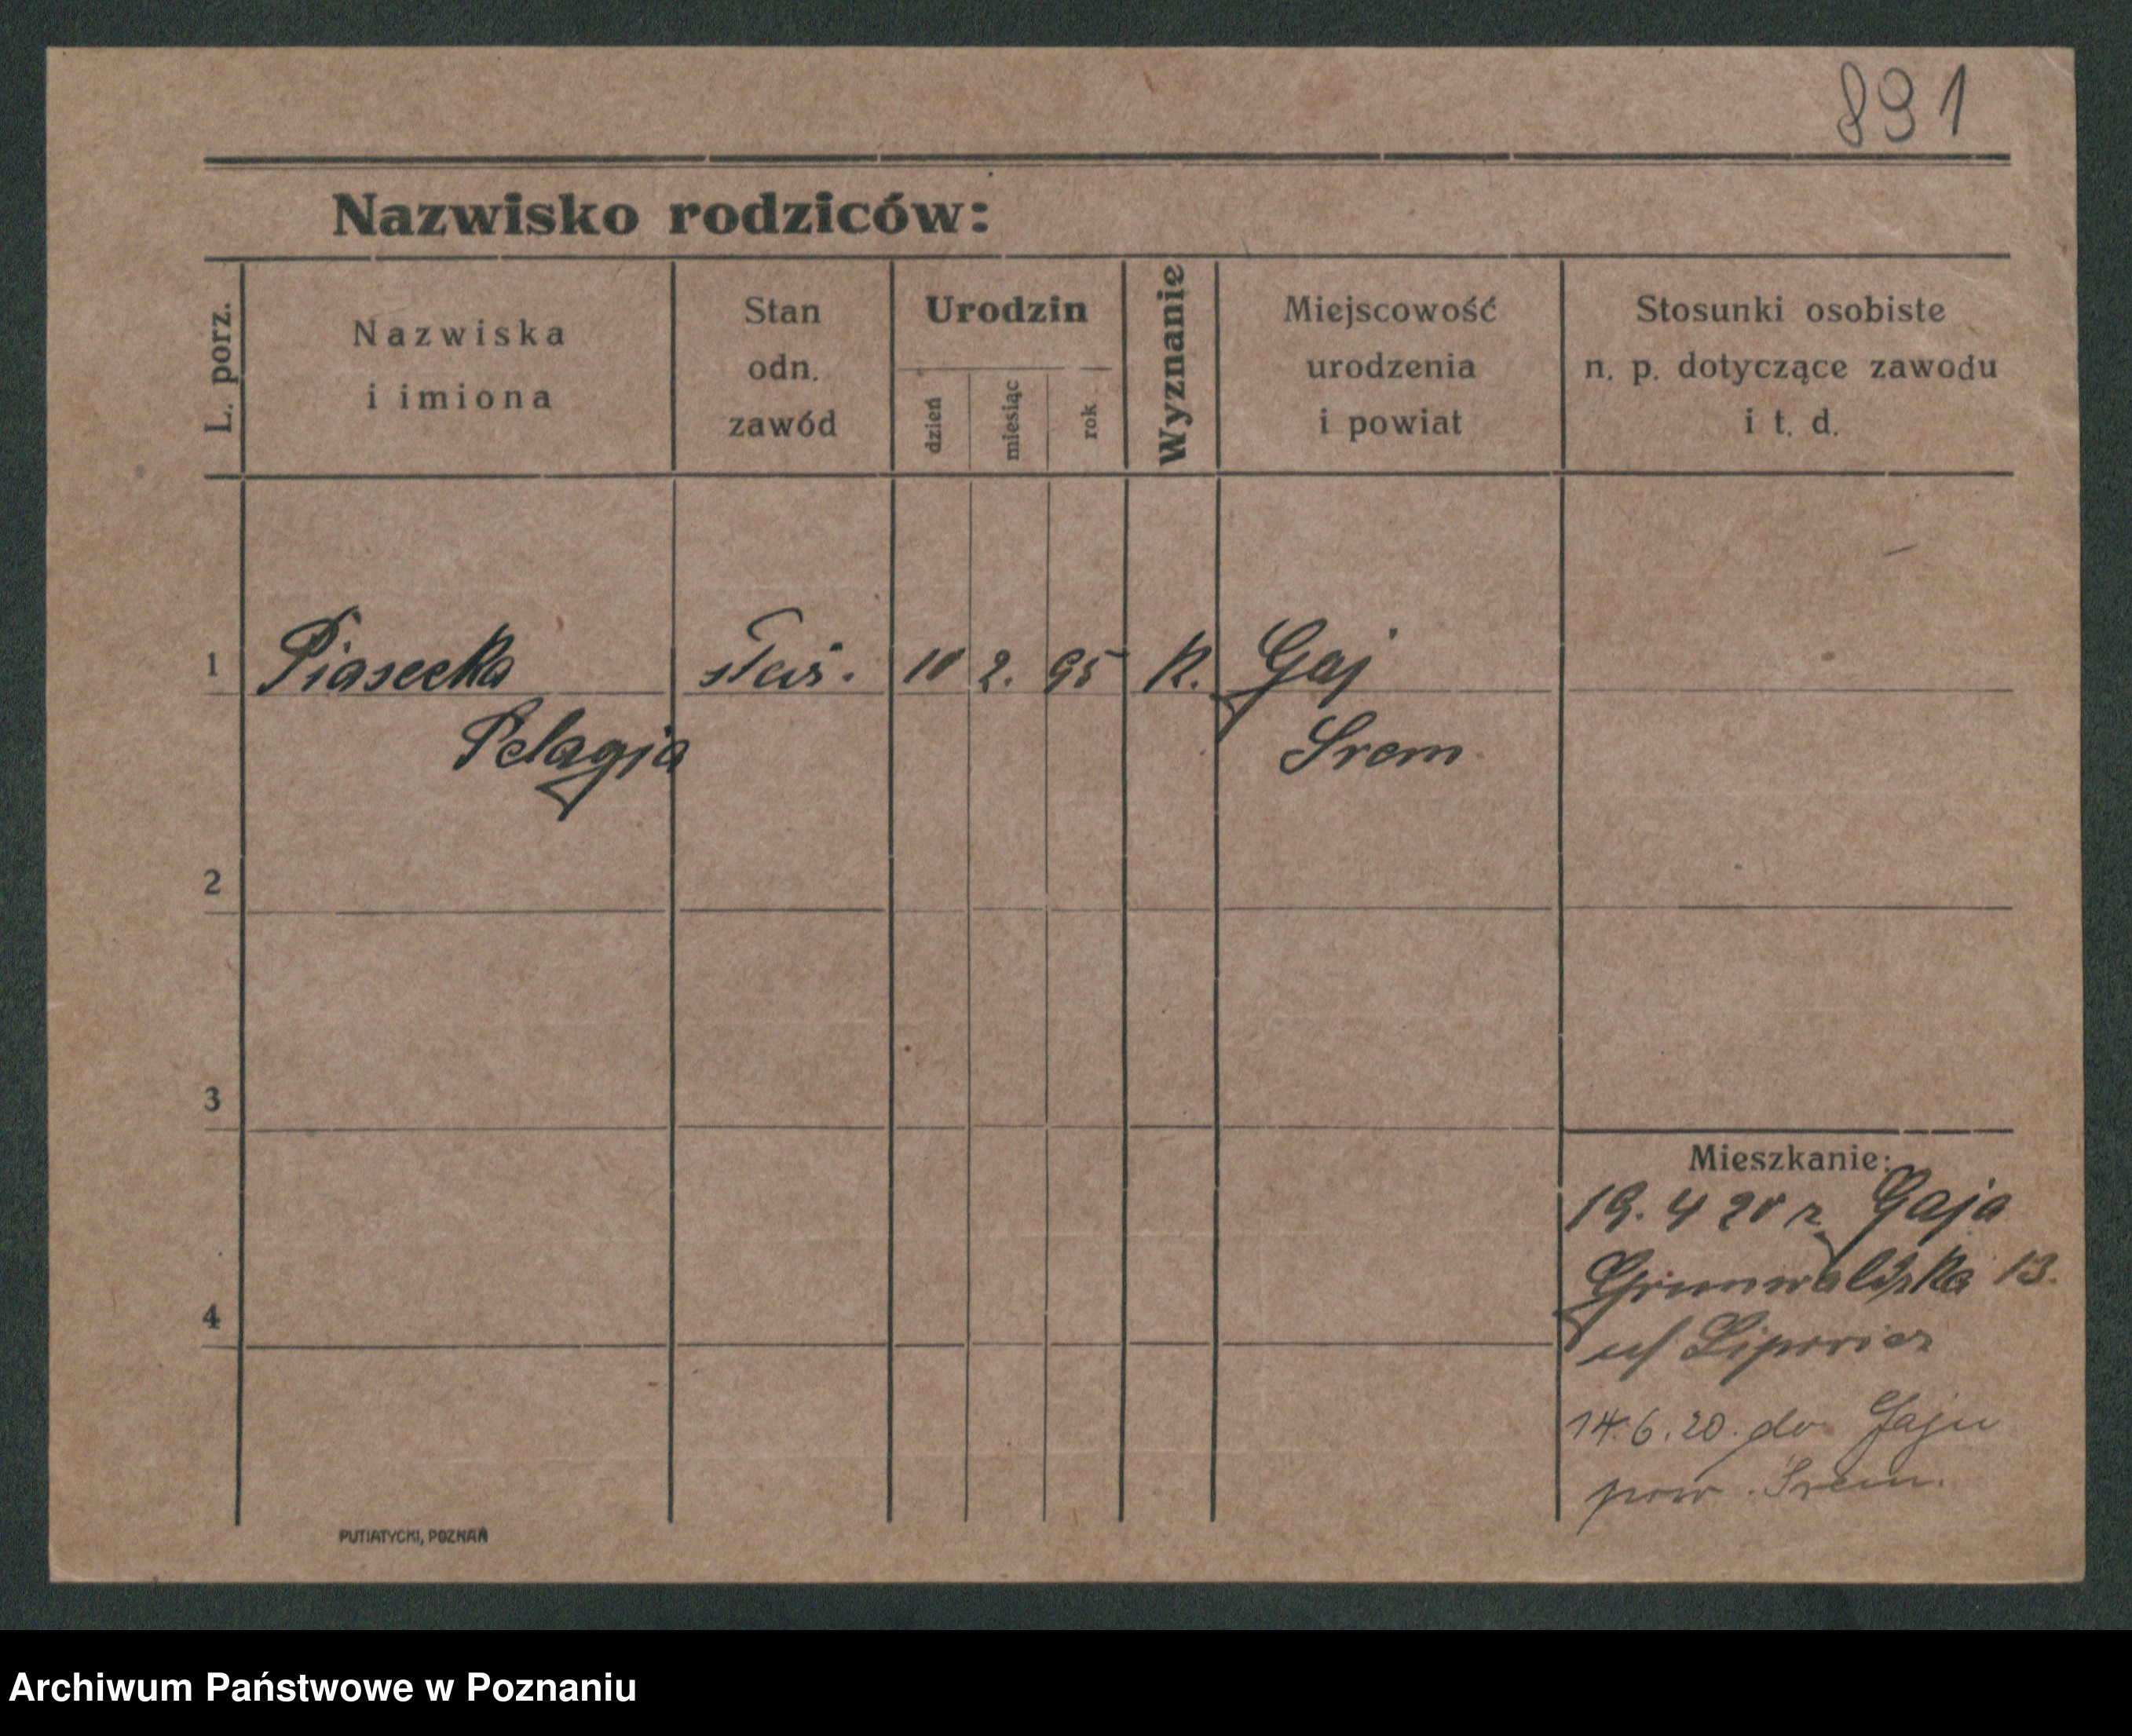 891
Nazwisko rodziców:
L. porz.
Nazwiska
i imiona
Stan
odn.
zawód
Urodzin
dzień
miesiąc
rok
Wyznanie
Miejscowość
urodzenia
i powiat
Stosunki osobiste
n. p. dotyczące zawodu
i t. d.
1 Piasecka 10 2. 95 K. Gaj
Pelagja Srem
2
3
4
Mieszkanie:
19. 4 20 z Gaja
Grunwaldzka 13.
u/
14.6.20. do Gaju
pow. Srem.
PUTIATYCKI, POZNAŃ
Archiwum Państwowe w Poznaniu